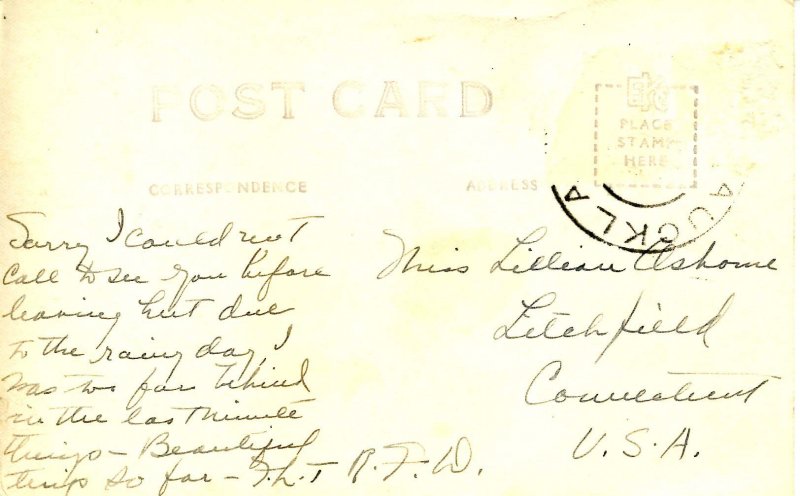 POST CARD
PLACE
STAMP
HERE
CORRESPONDENCE
ADDRESS
AUCKLA
Sorry I could not
call to see you before
leaving but due
to the rainy day I
was too far behind
in the last minute
things – Beautiful
trip so far –
Miss Lillian Osborne
Litchfield
Connecticut
U.S.A.
R.F.D.